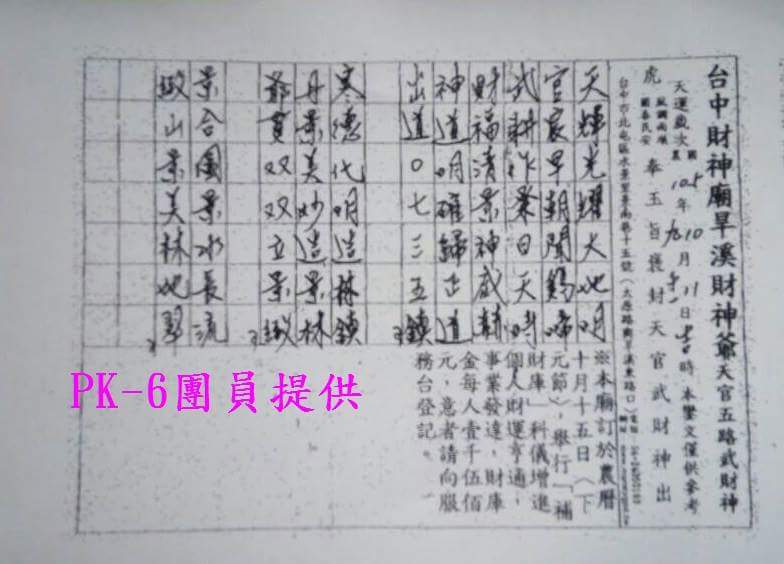 台中財神廟旱溪財神爺天官五路武財神
天運歲次國農105年九10月11日 時本鸞文僅供參考
風調雨順
國泰民安
虎 奉玉旨褒封天官武財神出
台中市北屯區水景里景南巷十五號(太原路與旱溪東路口)電話
天輝光耀大地明
官宸早朝聞鷄啼
武耕作業日天時
財福清景神威
神道明確歸正道
出道0七三五鎮
寒德代明造林鎮
丹景美妙造景林
爺貫双双立景
景合團景水長流
山景美林地
※本廟訂於農曆
十月十五日〈下
元節〉,舉行「補
財庫」科儀增進
個人財運亨通,
事業發達,財庫
金每人壹千伍佰
元,意者請向服
務台登記。
PK-6團員提供